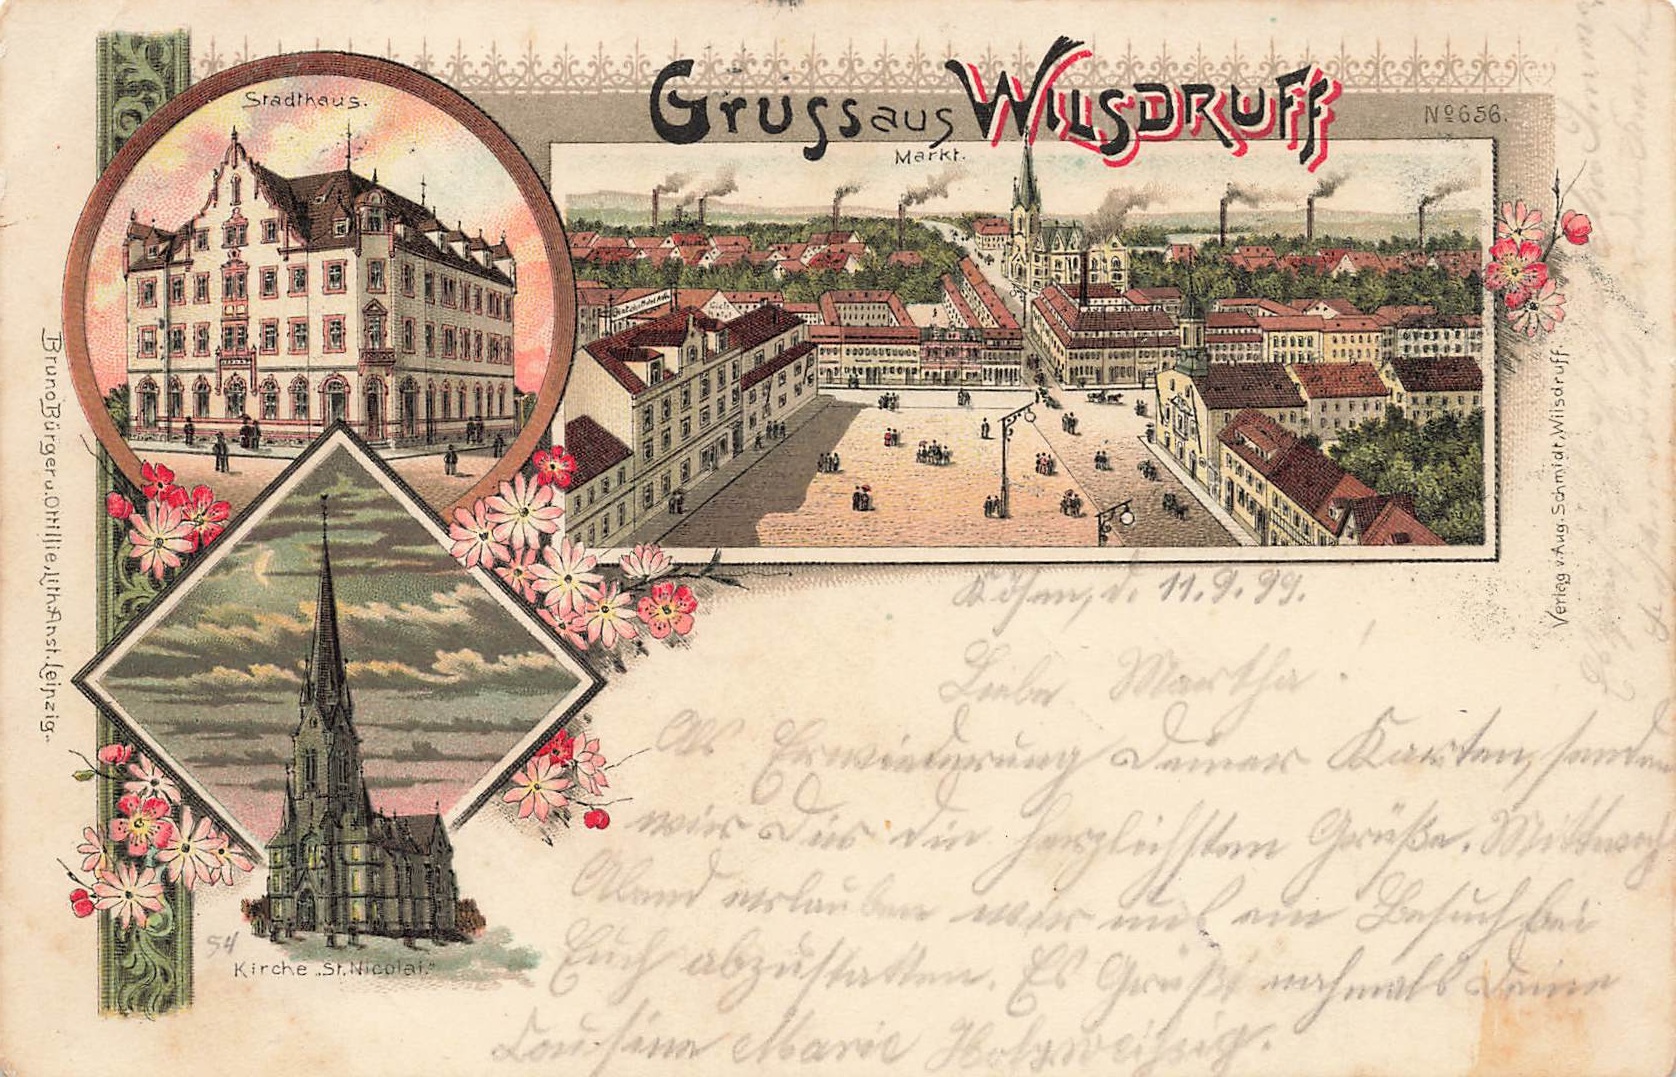 Gruss aus WILSDRUFF
Nº 656.
Stadthaus.
Markt.
Kirche „St. Nicolai."
54
Bruno Bürger u. Ottillie, Lith. Anst. Leipzig.
Verlag v. Aug. Schmidt, Wilsdruff.
d. 11.9.99.
Liebe Martha!
Als Erwiederung Deiner Karten, senden
wir Dir die herzlichsten Grüße. Mittwoch
Abend erlauben wir uns ein Besuch bei
Euch abzustatten. Es Grüßt nochmals Deine
Cousine Marie